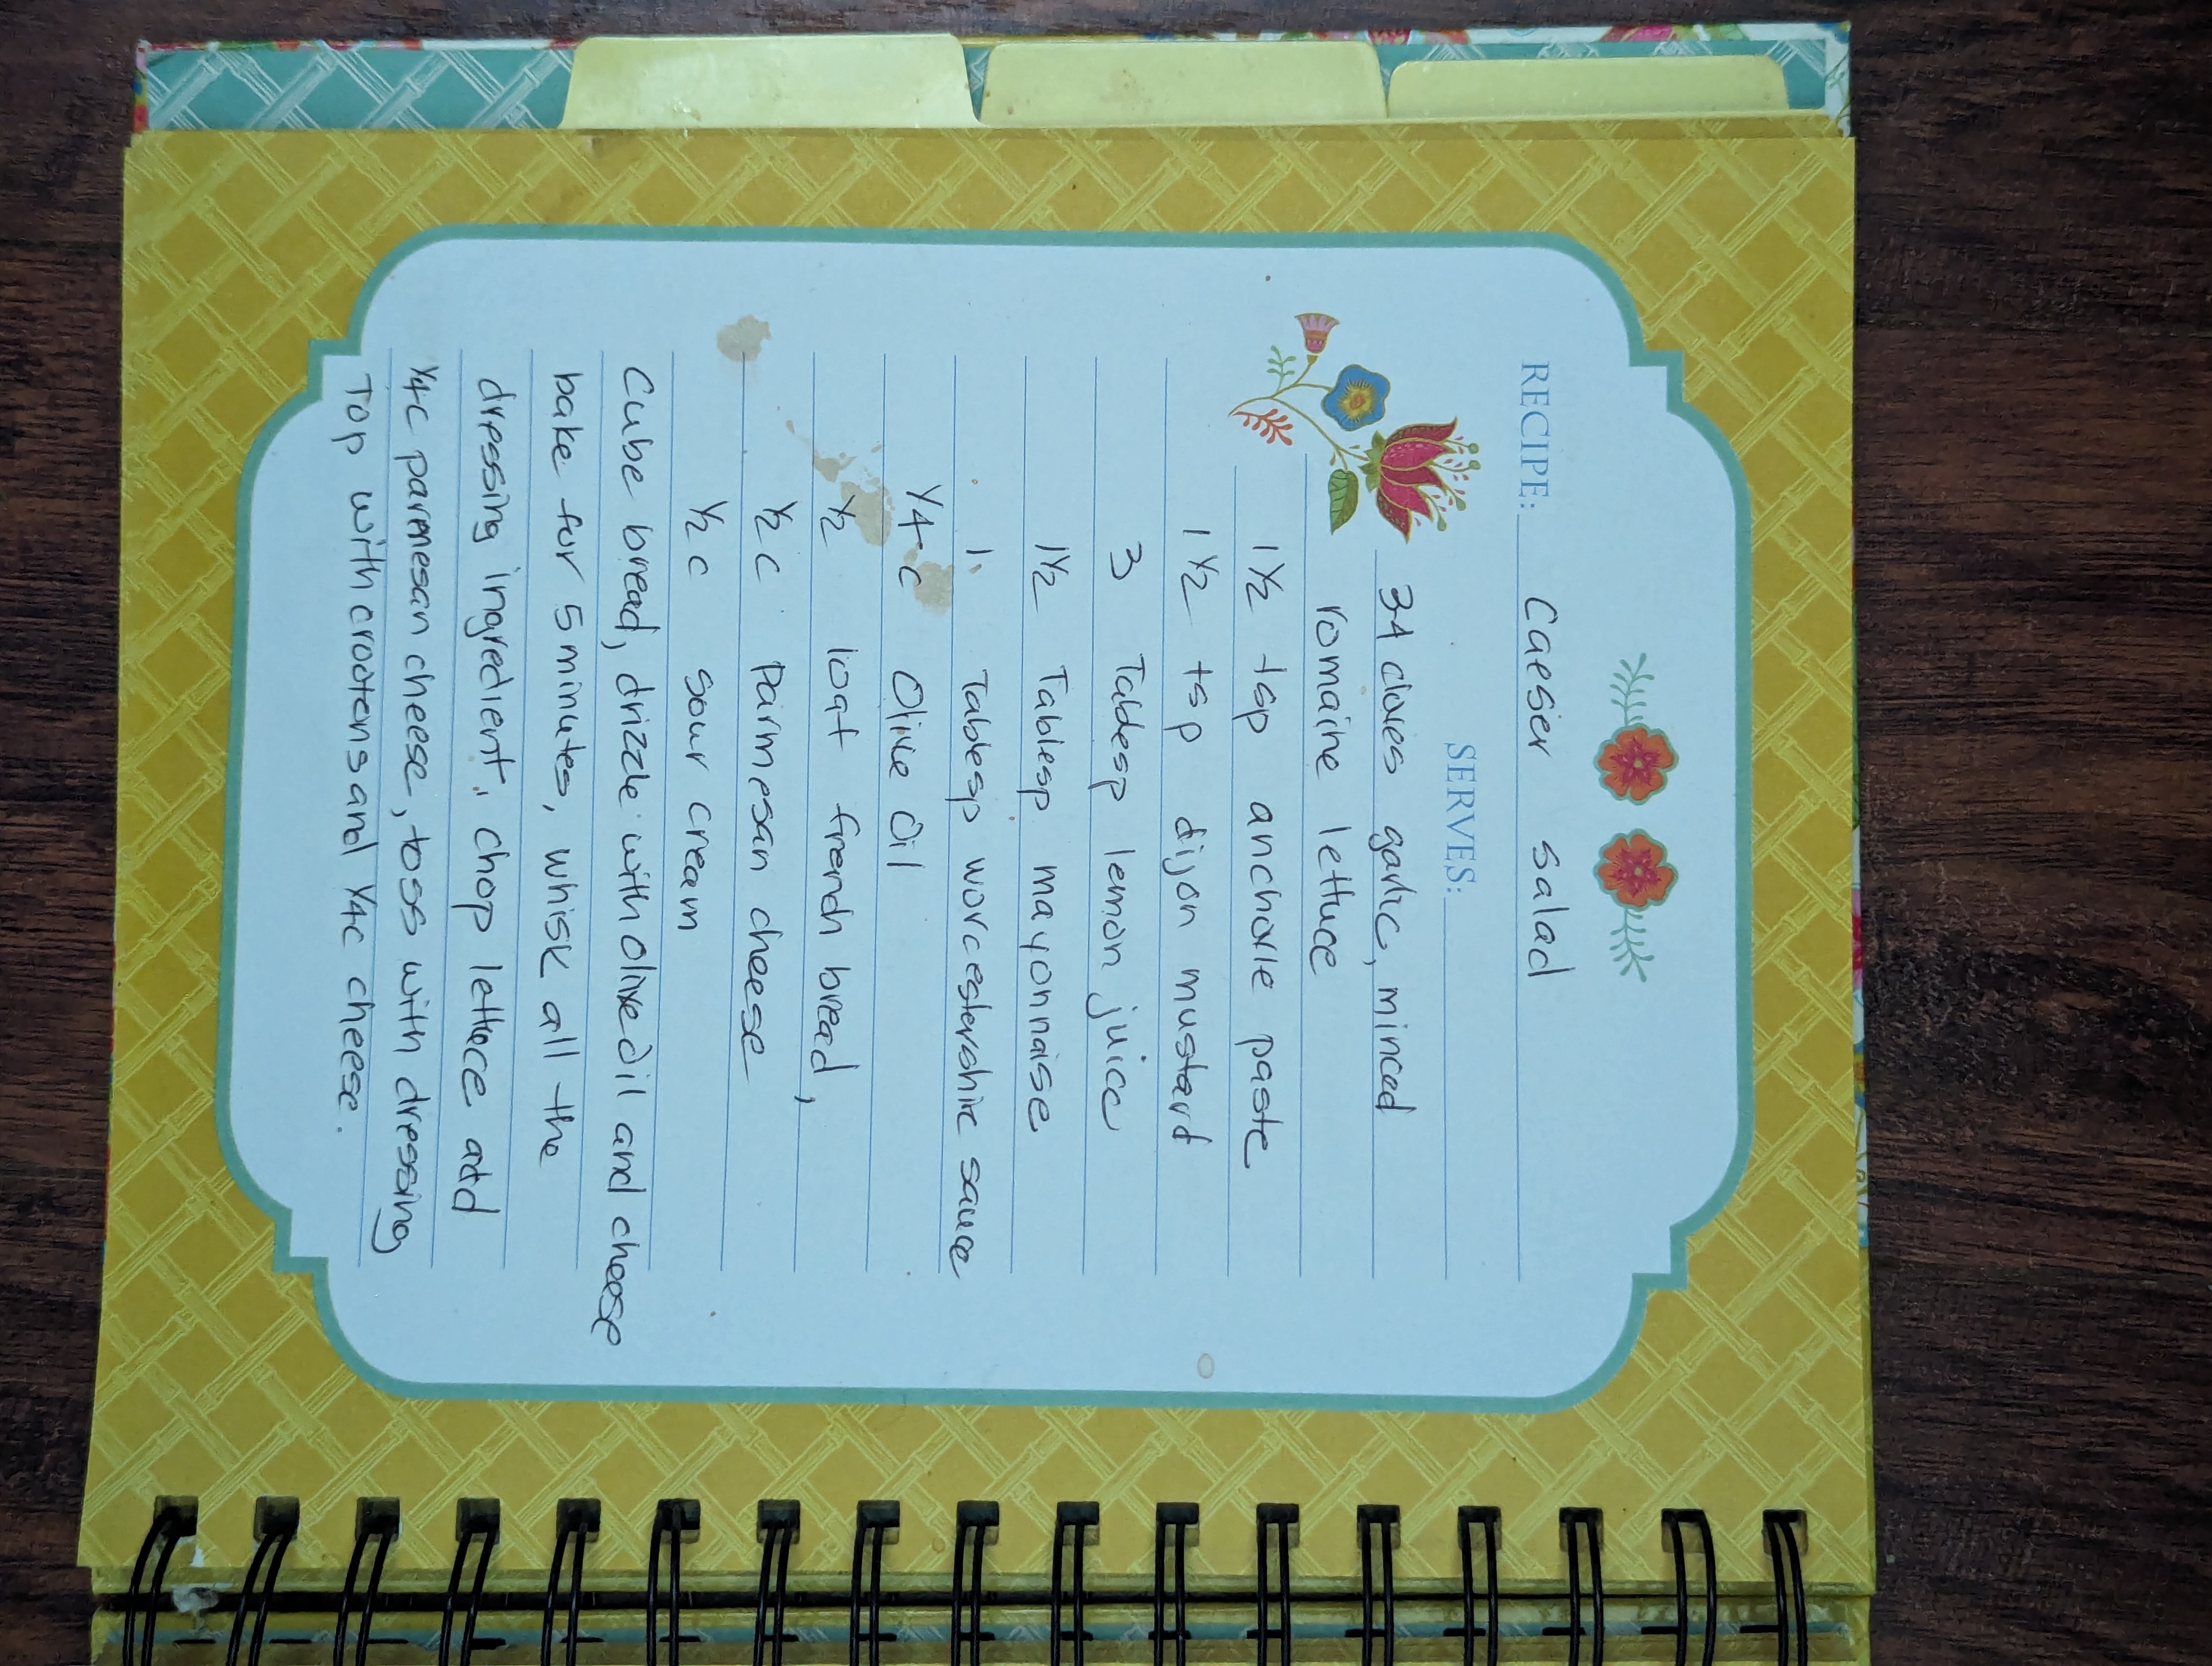 RECIPE: Caeser salad
SERVES:
3-4 cloves garlic, minced
romaine lettuce
1 1/2 tsp anchovie paste
1 1/2 tsp dijon mustard
3 Tablesp lemon juice
1 1/2 Tablesp mayonnaise
1 Tablesp worcestershire sauce
1/4 c Olive Oil
1/2 loaf french bread,
1/2 c parmesan cheese
1/2 c sour cream
Cube bread, drizzle with olive oil and cheese
bake for 5 minutes, whisk all the
dressing ingredient. chop lettuce add
1/4 c parmesan cheese, toss with dressing
Top with crootons and 1/4 c cheese.